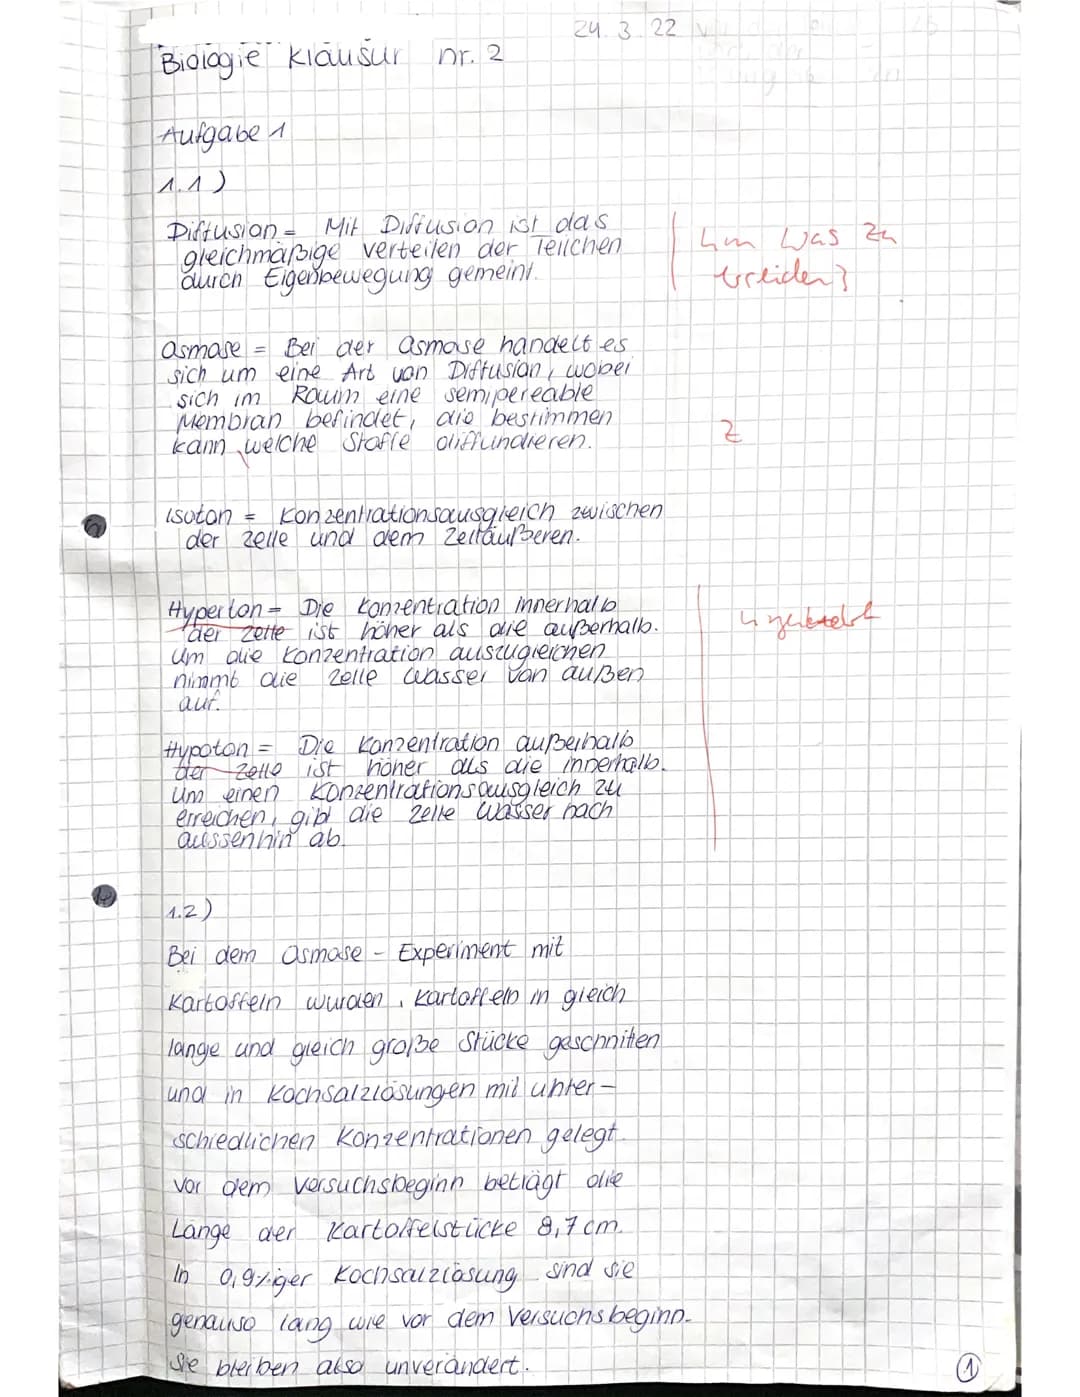 24.3.22
Biologie Klausur nr. 2
Aufgabe 1
1.1)
Diffusion = Mit Diffusion ist das
gleichmäßige verteilen der Teilchen
durch Eigenbewegung gemeint.
um was zu
Osmose = Bei der Osmose handelt es
sich um eine Art von Diffusion, wobei
sich im Raum eine semipereable
Membran befindet, die bestimmen
kann welche Stoffe diffundieren.
Z
Isoton = Konzentrationsausgleich zwischen
der Zelle und dem Zelläußeren.
Hyperton = Die Konzentration innerhalb
der Zelle ist höher als die außerhalb.
Um die Konzentration auszugleichen
nimmt die Zelle Wasser von außen
auf.
umgekehrt
Hypoton = Die Konzentration außerhalb
der Zelle ist höher als die innerhalb.
Um einen Konzentrationsausgleich zu
erreichen, gibt die Zelle Wasser nach
aussenhin ab.
1.2)
Bei dem Osmose - Experiment mit
Kartoffeln wurden, Kartoffeln in gleich
lange und gleich große Stücke geschnitten
und in Kochsalzlösungen mit unter-
schiedlichen Konzentrationen gelegt.
Vor dem Versuchsbeginn beträgt die
Länge der Kartoffelstücke 8,7 cm.
In 0,9%iger Kochsalzlösung sind sie
genauso lang wie vor dem Versuchsbeginn.
Sie bleiben also unverändert.
1